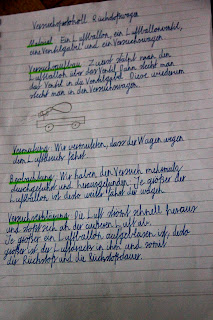 Versuchsprotokoll Rückstoßwagen
Material: Ein Luftballon, ein Luftballonventil,
eine Ventilgabel und ein Versuchswagen.
Versuchsaufbau: Zuerst stülpt man den
Luftballon über das Ventil. Dann steckt man
das Ventil in die Ventilgabel. Diese wiederum
steckt man in den Versuchswagen.
Vermutung: Wir vermuten, dass der Wagen wegen
dem Luftdruck fährt.
Beobachtung: Wir haben den Versuch mehrmals
durchgeführt und herausgefunden: Je größer der
Luftballon ist desto weiter fährt der Wagen.
Versuchserklärung: Die Luft strömt schnell heraus
und stößt sich an der äußeren Luft ab.
Je größer ein Luftballon aufgeblasen ist, desto
größer ist der Luftdruck in ihm und somit
der Rückstoß und die Rückstoßdauer.